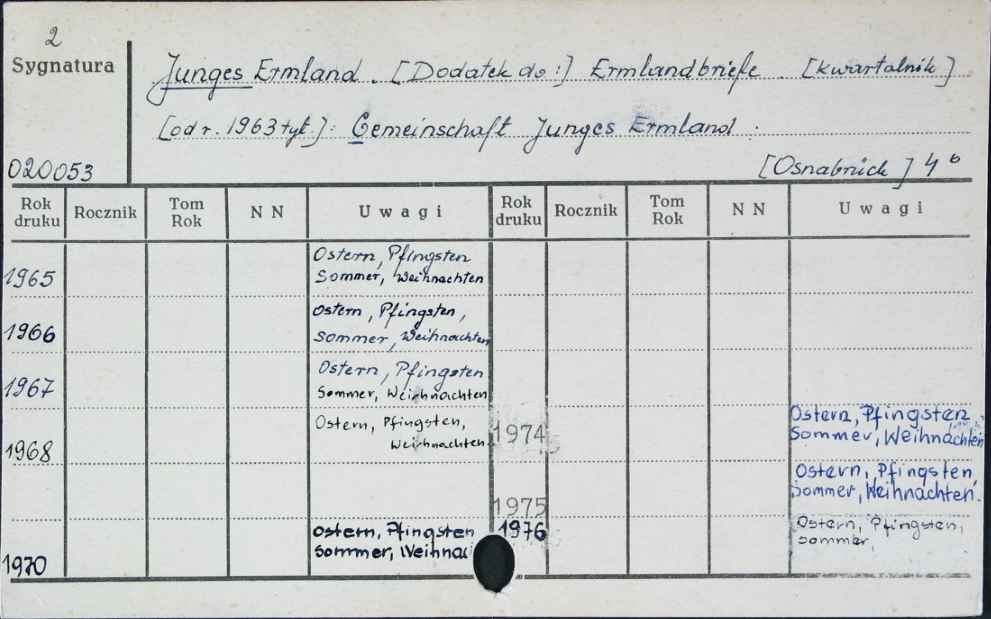 2
Sygnatura
Junges Ermland. [Dodatek do:] Ermlandbriefe. [kwartalnik]
[od r. 1963 tyt.]: Gemeinschaft Junges Ermland.
020053
[Osnabrück] 4°
Rok druku Rocznik Tom Rok NN Uwagi Rok druku Rocznik Tom Rok NN Uwagi
1965 Ostern, Pfingsten
Sommer, Weihnachten
1966 Ostern, Pfingsten,
Sommer, Weihnachten
1967 Ostern, Pfingsten
Sommer, Weichnachten
1968 Ostern, Pfingsten,
Weichnachten
1970 Ostern, Pfingsten
Sommer, Weihnac
1974 Ostern, Pfingsten
Sommer, Weihnachten
1975 Ostern, Pfingsten,
Sommer, Weihnachten.
1976 Ostern, Pfingsten,
Sommer,